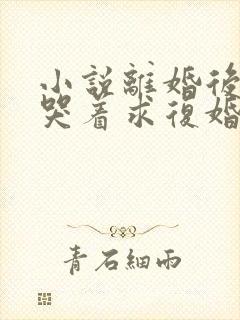 小說離婚後
哭着求復婚
青石細雨